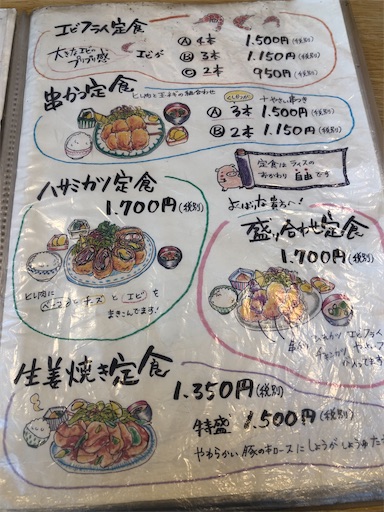 エビフライ定食
大きなエビの
プリプリ感
エビが
Ⓐ 4本 1.500円(税別)
Ⓑ 3本 1.150円(税別)
Ⓒ 2本 950円(税別)
串かつ定食
とん肉と玉ネギの組合わせ
くしかつが
+やさい串つき
Ⓐ 3本 1.500円(税別)
Ⓑ 2本 1.150円(税別)
定食はライスの
おかわり 自由です
ハサミカツ定食
1.700円(税別)
とん肉に
チーズ と エビ を
まきこんでます!
よくばりな貴方へ!
盛り合わせ定食
1.700円(税別)
エビフライ
生姜焼き定食
1.350円(税別)
特盛 1.500円(税別)
やわらかい豚の肩ロースにしょうがしょうゆ